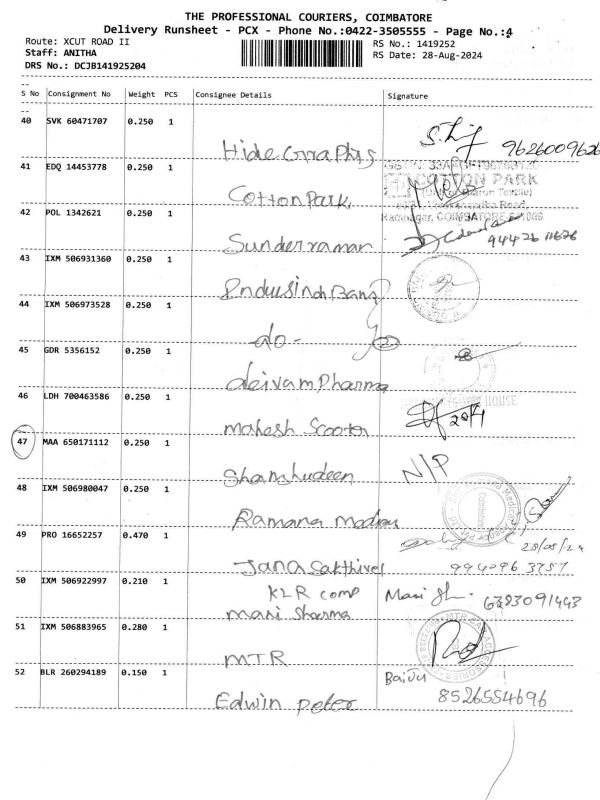 THE PROFESSIONAL COURIERS, COIMBATORE
Delivery Runsheet - PCX - Phone No.:0422-3505555 - Page No.:4
Route: XCUT ROAD II
RS No.: 1419252
Staff: ANITHA
RS Date: 28-Aug-2024
DRS No.: DCJB141925204
S No Consignment No Weight PCS Consignee Details Signature
40 SVK 60471707 0.250 1
Hide Graphis 9626009626
41 EDQ 14453778 0.250 1
COTTON PARK
Cotton Park
Ramnagar, COIMBATORE
42 POL 1342621 0.250 1
Sunderraman 94426 11626
43 IXM 506931360 0.250 1
Indusindh Bank
44 IXM 506973528 0.250 1
-do- 2
45 GDR 5356152 0.250 1
deivam Pharma
HOUSE
46 LDH 700463586 0.250 1
mahesh Scooter
47 MAA 650171112 0.250 1
Shamshudeen N/P
48 IXM 506980047 0.250 1
Ramana
49 PRO 16652257 0.470 1
28/08/24
Jana Sakthivel 994096 3757
50 IXM 506922997 0.210 1
KLR comp
mani Sharma Mani 6383091443
51 IXM 506883965 0.280 1
MTR
52 BLR 260294189 0.150 1
Baiju
Edwin Peter 8526554696